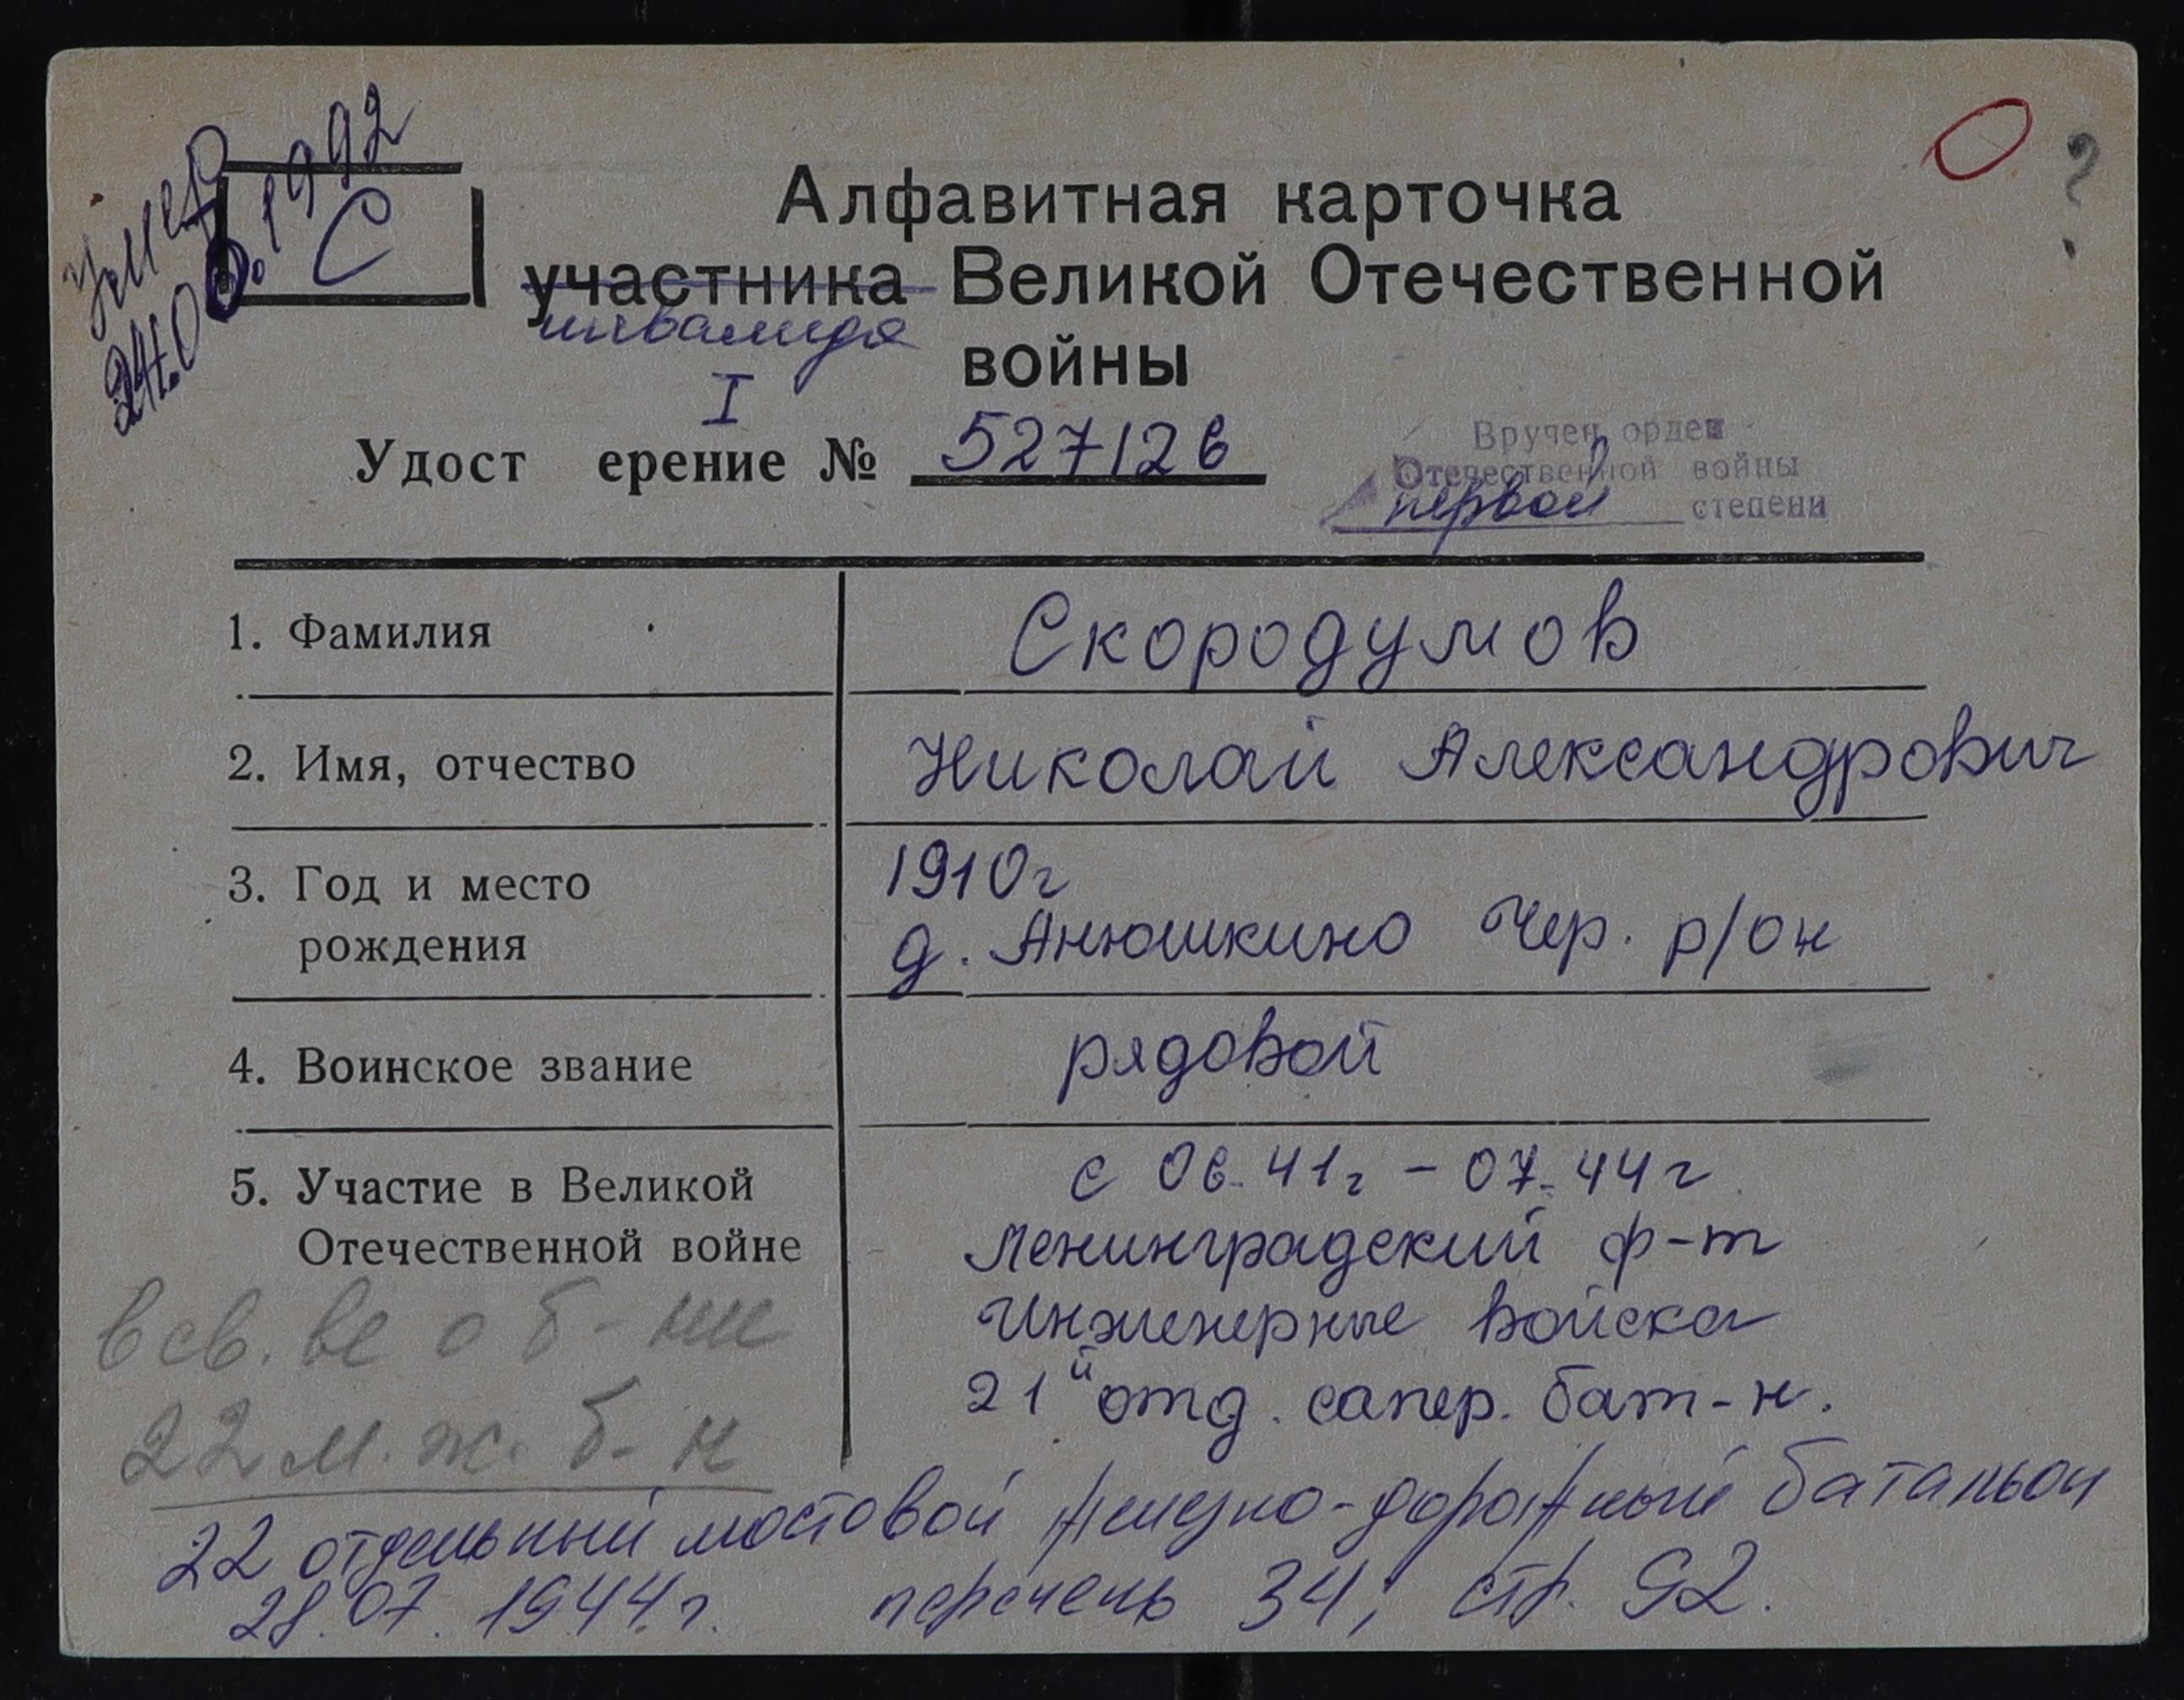 Умер
24.06.1992
С
Алфавитная карточка
участника Великой Отечественной
инвалида
войны
I
Удост ерение № 527126
Вручен орден
Отечественной войны
первой степени
1. Фамилия Скородумов
2. Имя, отчество Николай Александрович
3. Год и место 1910г
рождения д. Анюшкино Чер. р/он
4. Воинское звание рядовой
5. Участие в Великой с 06.41г - 07.44г
Отечественной войне Ленинградский ф-т
Инженерные войска
21й отд. сапер. бат-н.
22 м. ж. б-н
22 отдельный мостовой железно-дорожный батальон
28.07.1944г. перечень 34; стр. 92.
?